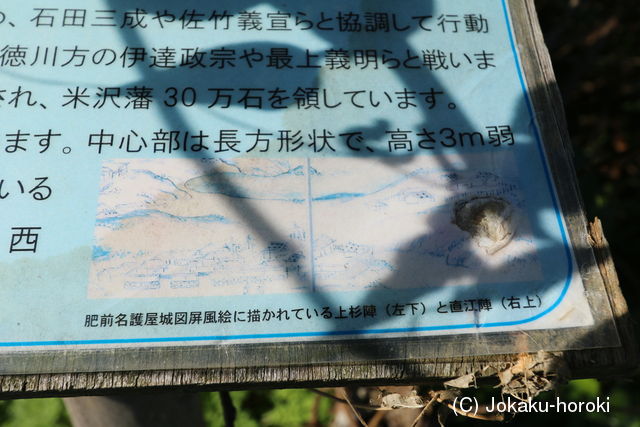 、石田三成や佐竹義宣らと協調して行動
徳川方の伊達政宗や最上義明らと戦いま
され、米沢藩 30 万石を領しています。
ます。中心部は長方形状で、高さ3m弱
いる
西
肥前名護屋城図屏風絵に描かれている上杉陣（左下）と直江陣（右上）
(C) Jokaku-horoki